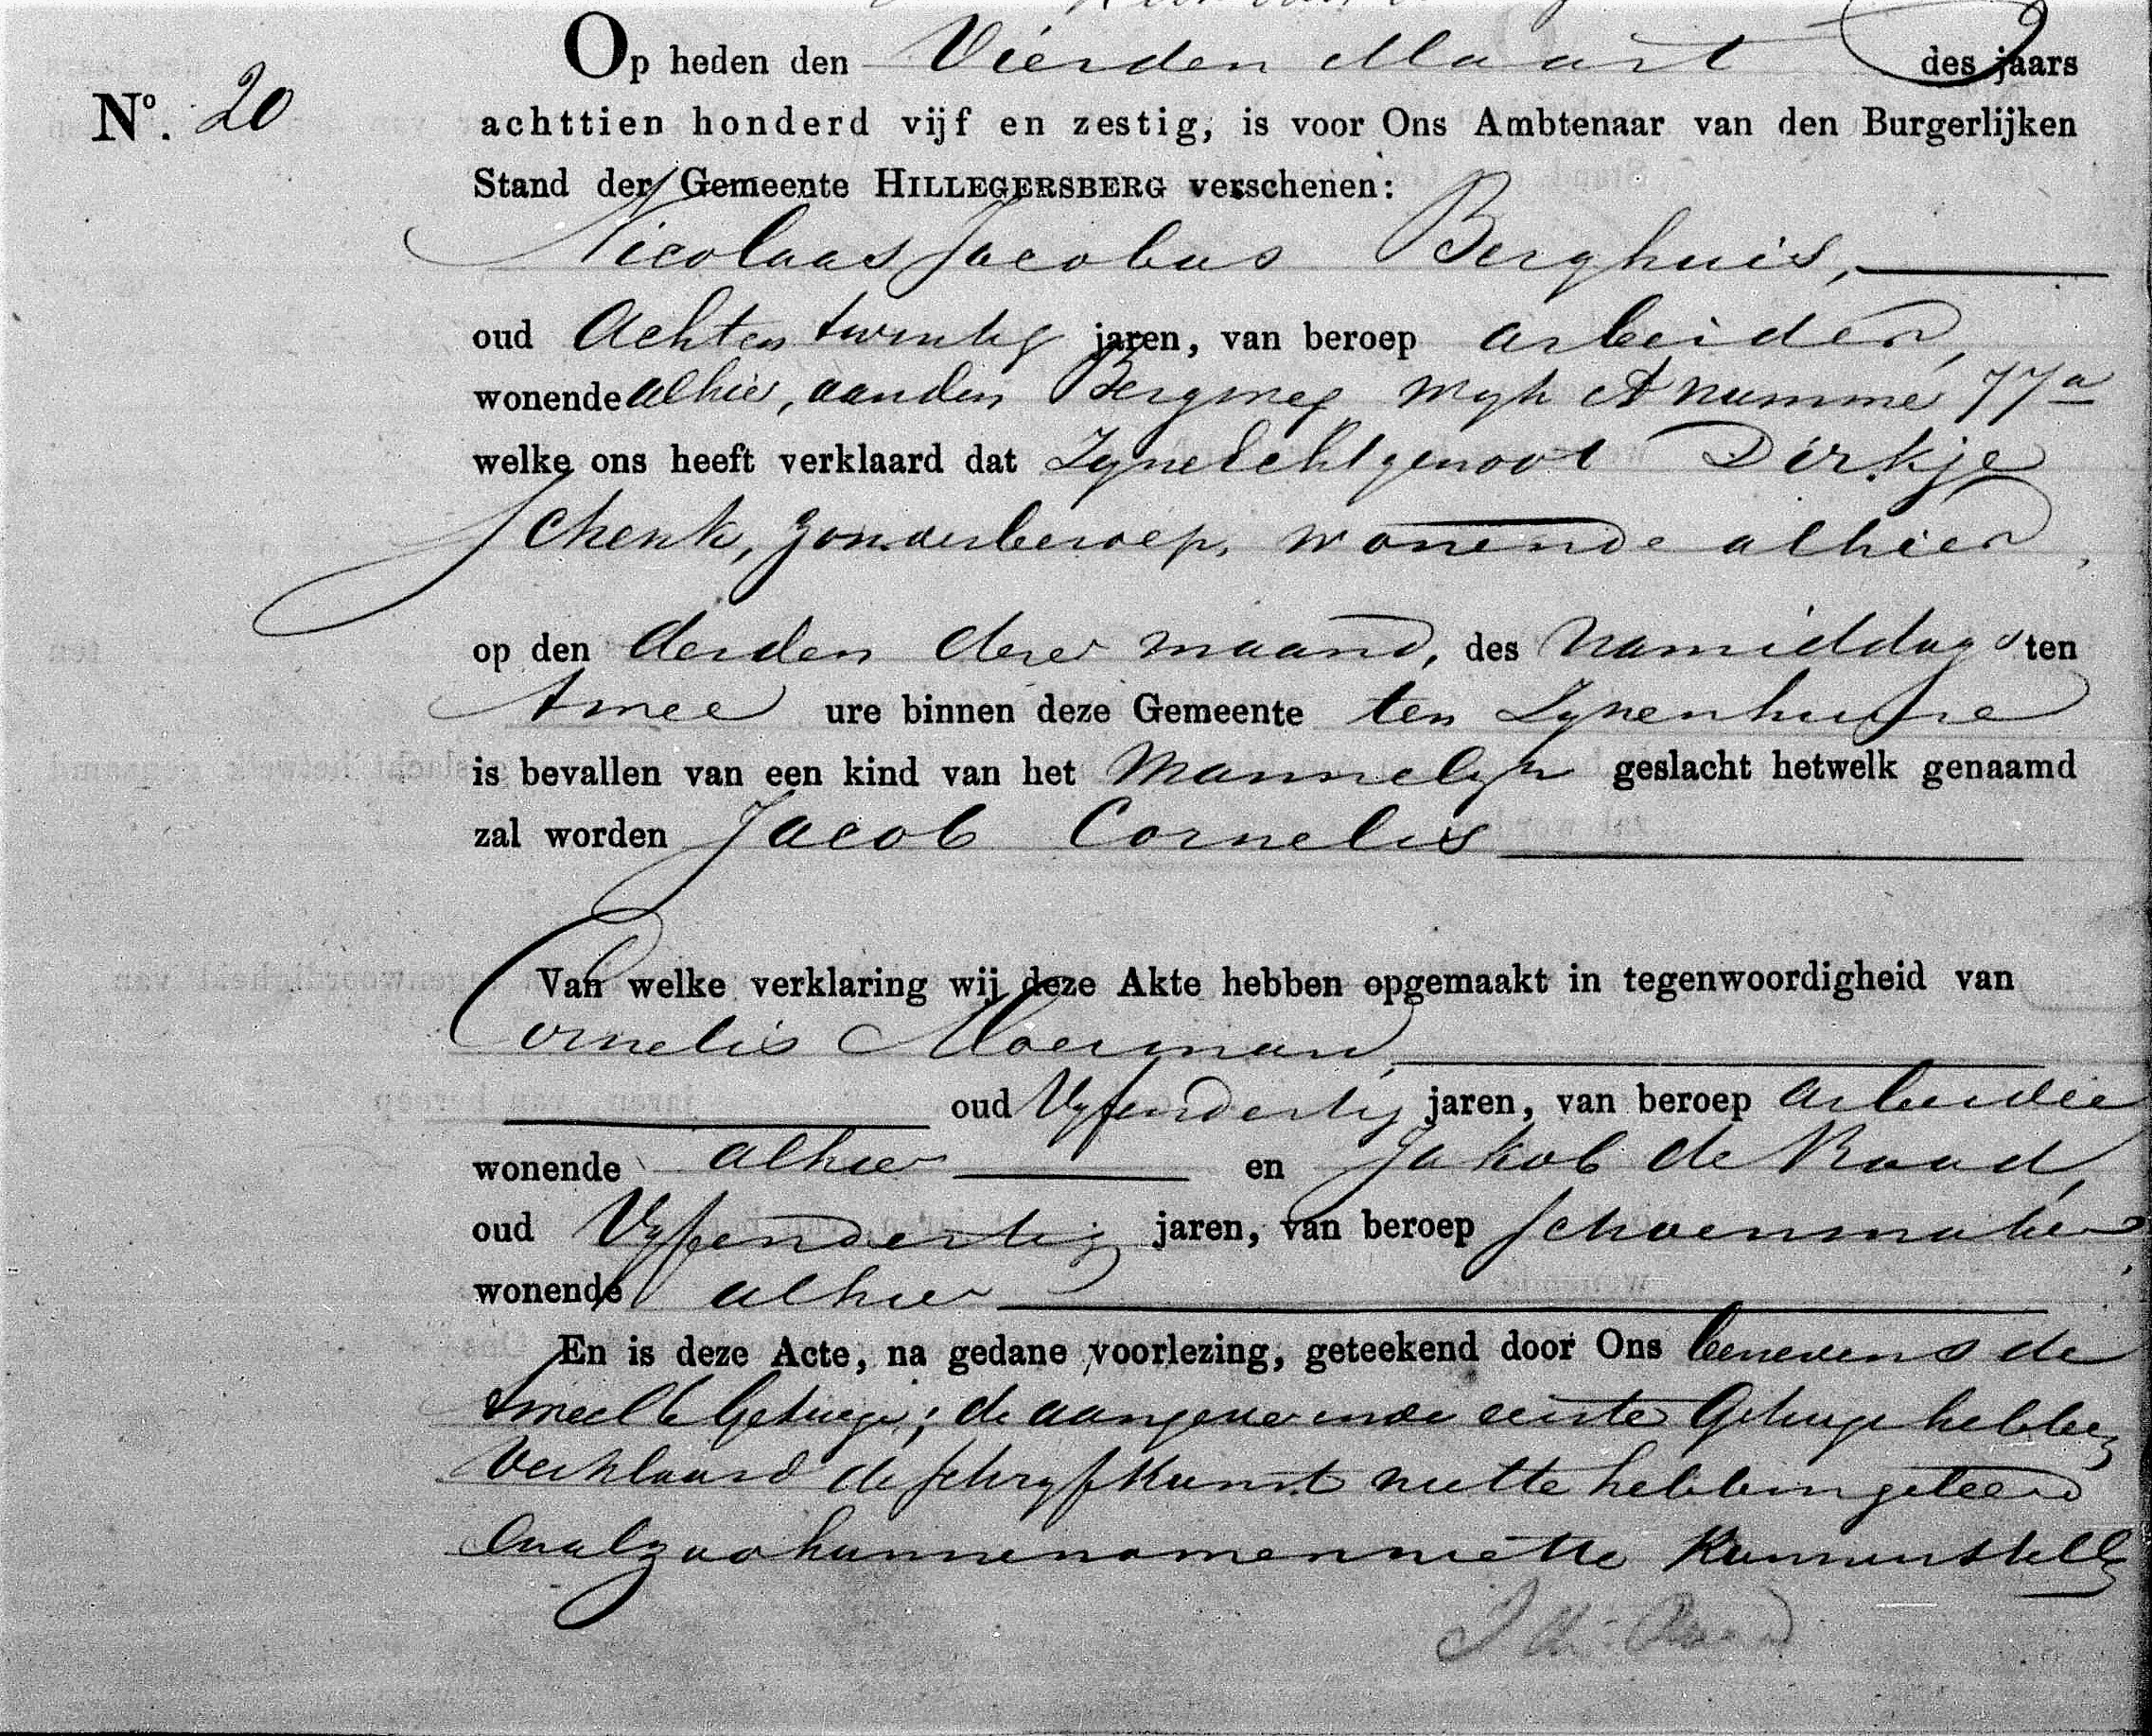 Op heden den Vierden Maart des jaars
No. 20
achttien honderd vijf en zestig, is voor Ons Ambtenaar van den Burgerlijken
Stand der Gemeente HILLEGERSBERG verschenen:
Nicolaas Jacobus Berghuis,
oud Achtentwintig jaren, van beroep arbeider,
wonende alhier, aanden Bergweg wyk A nummer 77a
welke ons heeft verklaard dat Zyne Echtgenoot Dirkje
Schenk, zonder beroep, wonende alhier,
op den derden dezer maand, des namiddags ten
twee ure binnen deze Gemeente ten Zynenhuize
is bevallen van een kind van het Mannelyk geslacht hetwelk genaamd
zal worden Jacob Cornelis
Van welke verklaring wij deze Akte hebben opgemaakt in tegenwoordigheid van
Cornelis Moerman,
oud Vyfendertig jaren, van beroep arbeider
wonende alhier en Jakob de Raad,
oud Vyfendertig jaren, van beroep schoenmaker,
wonende alhier
En is deze Acte, na gedane voorlezing, geteekend door Ons benevens de
tweede Getuige; de aangever en de eerste Getuige hebben
verklaard de schryfkunst niette hebben geleerd
en alzoo hunne namen niette kunnen stellen
J de Raad